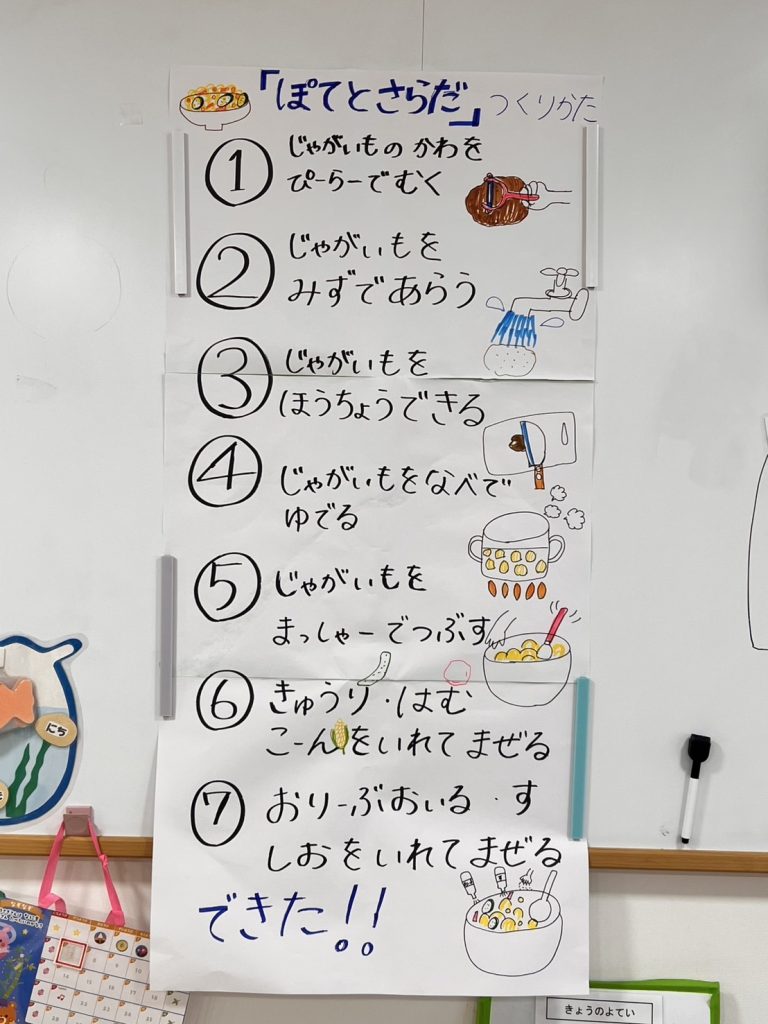 「ぽてとさらだ」つくりかた
① じゃがいものかわを
ぴーらーでむく
② じゃがいもを
みずであらう
③ じゃがいもを
ほうちょうできる
④ じゃがいもをなべで
ゆでる
⑤ じゃがいもを
まっしゃーでつぶす
⑥ きゅうり・はむ
こーんをいれてまぜる
⑦ おりーぶおいる・す
しおをいれてまぜる
できた!!
にち
きょうのよてい